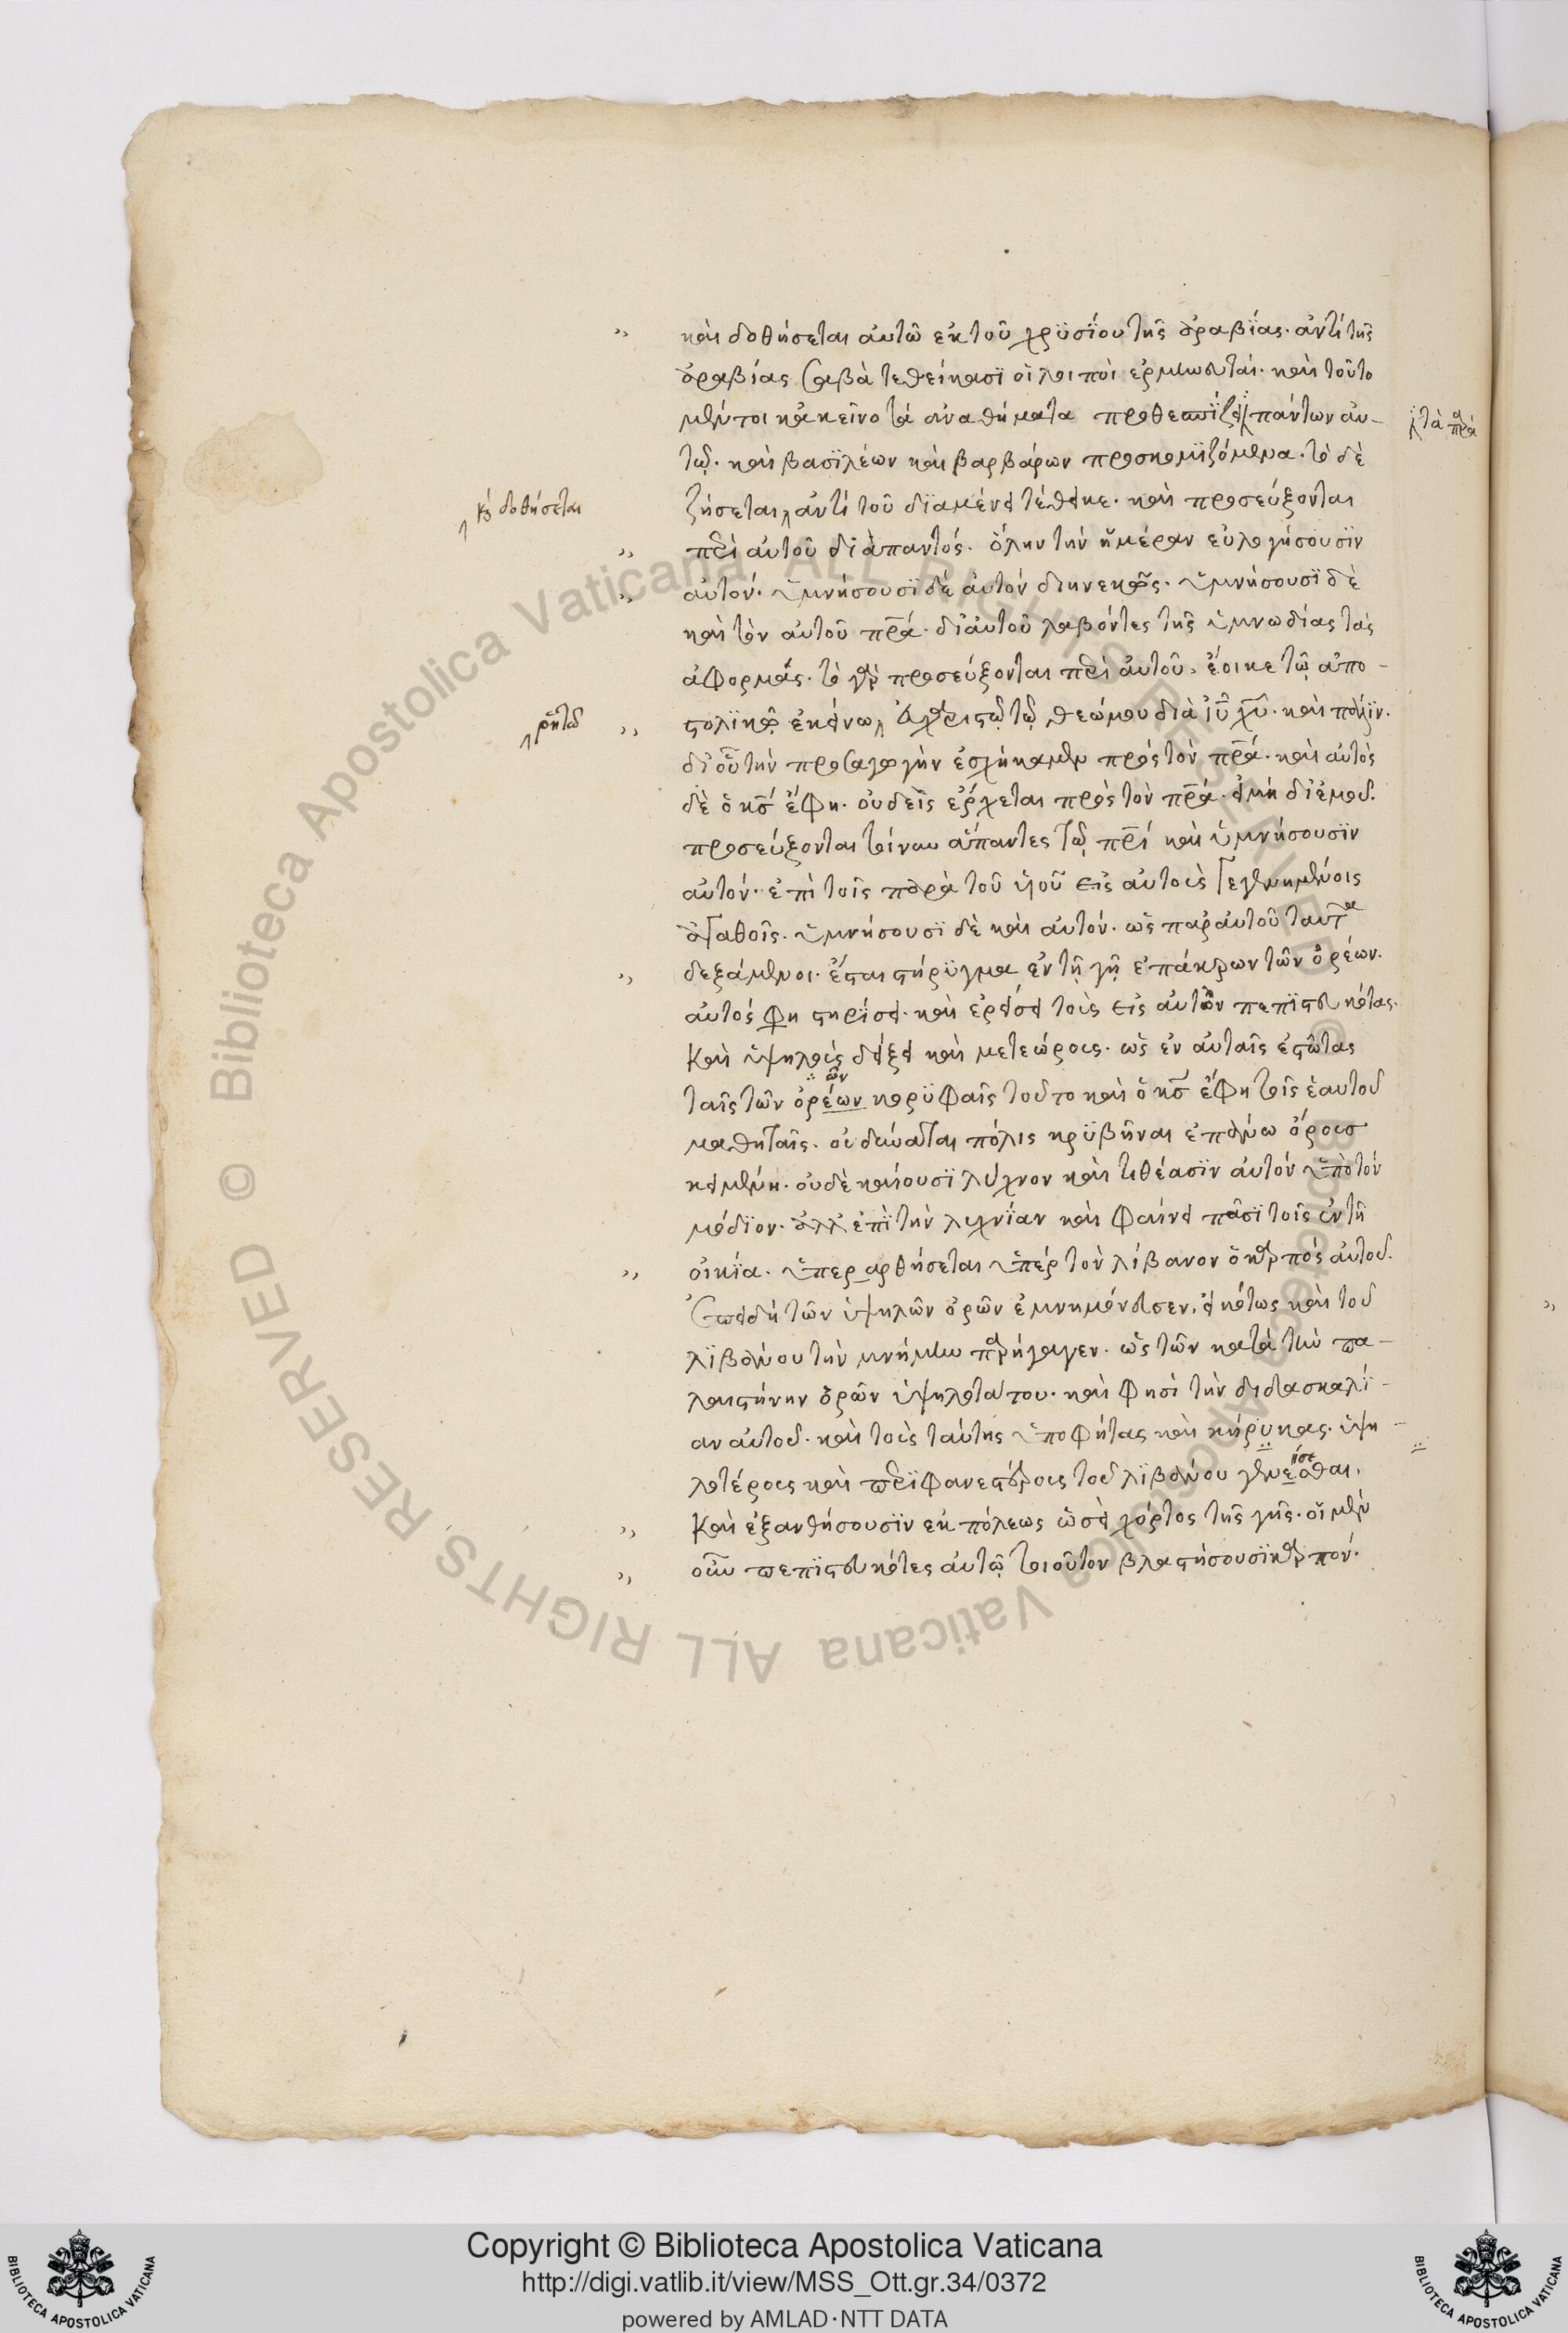 καὶ δοθήσεται αὐτῶ ἐκ τοῦ χρϋσΐου τῆς ἀραβΐας· ἀντὶ τῆς
ἀραβίας σαβὰ τεθείκασϊ οἱ λοιποὶ ἑρμηνευταί· καὶ τοῦτο
μέντοι κἀκεῖνο τὰ ἀναθήματα προθεσπΐζει παντων αυ-
τῶ· καὶ βασϊλέων καὶ βαρβάρων προσκομϊζόμενα· τὸ δὲ
ζήσεται, ἀντὶ τοῦ δϊαμένει τέθεικε· καὶ προσεύξονται
κ δοθήσεται
περὶ αὐτοῦ διὰπαντός· ὅλην τὴν ἡμέραν εὐλογήσουσϊν
αὐτόν· ὑμνήσουσϊ δὲ αὐτὸν διηνεκῶς· ὑμνήσουσϊ δὲ
καὶ τὸν αὐτοῦ πρα· δι αὐτοῦ λαβόντες τῆς ὑμνωδίας τὰς
ἀφορμάς· τὸ γὰρ προσεύξονται περὶ αὐτοῦ, ἔοικε τῶ ἀπο-
στολϊκῶ ἐκείνω, εὐχαριστῶ τῶ θεῶ μου διὰ ιυ χυ· καὶ πάλϊν·
ρητῶ
δι οὗ τὴν προσαγωγὴν ἐσχήκαμεν πρὸς τὸν πρα· καὶ αὐτὸς
δὲ ὁ κσ ἔφη· οὐδεὶς ἔρχεται πρὸς τὸν πρα· εἰ μὴ δι ἐμοῦ·
προσεύξονται τοίνυν ἅπαντες τῶ πρι καὶ ὑμνήσουσϊν
αὐτόν· ἐπὶ τοῖς παρὰ τοῦ υἱοῦ εἰς αὐτοὺς γεγενημένοις
ἀγαθοῖς· ὑμνήσουσϊ δὲ καὶ αὐτόν· ὡς παρ αὐτοῦ ταῦτα
δεξάμενοι· ἔσται στήρϊγμα ἐν τῆ γῆ ἐπάκρων τῶν ὀρέων·
αὐτός φη στηρΐσει· καὶ ἐρείσει τοὺς εἰς αὐτὸν πεπϊστευκότας·
καὶ ὑψηλοὺς δείξει καὶ μετεώρους· ὡς ἐν αὐταῖς ἑστῶτας
ταῖς τῶν ὀρέων κορϋφαῖς τοῦτο καὶ ὁ κσ ἔφη τοῖς ἑαυτοῦ
μαθηταῖς· οὐ δύναται πόλις κρϋβῆναι ἐπάνω ὄρους
κειμένη· οὐδὲ καίουσϊ λύχνον καὶ τιθέασϊν αὐτὸν ὑπὸ τὸν
μόδϊον· ἀλλ ἐπὶ τὴν λυχνΐαν καὶ φαίνει πᾶσϊ τοῖς ἐν τῆ
οἰκΐα· ὑπεραρθήσεται ὑπὲρ τὸν λίβανον ὁ καρπός αὐτοῦ·
ἐπειδὴ τῶν ὑψηλῶν ὀρῶν ἐμνημόνευσεν, εἰκότως καὶ τοῦ
λϊβάνου τὴν μνήμην παρήγαγεν· ὡς τῶν κατὰ τὴν πα-
λαιστήνην ὀρῶν ὑψηλοτάτου· καὶ φησὶ τὴν διδασκαλΐ-
αν αὐτοῦ· καὶ τοὺς ταύτης ὑποφήτας καὶ κήρυκας· ὑψη-
λοτέρους καὶ περϊφανεστέρους τοῦ λϊβάνου γενέσθαι,
καὶ ἐξανθήσουσϊν ἐκ πόλεως ὡσεὶ χόρτος τῆς γῆς· οἱ μὲν
οὖν πεπϊστευκότες αὐτῶ τοιοῦτον βλαστήσουσϊ καρπόν·
Copyright © Biblioteca Apostolica Vaticana
http://digi.vatlib.it/view/MSS_Ott.gr.34/0372
powered by AMLAD·NTT DATA